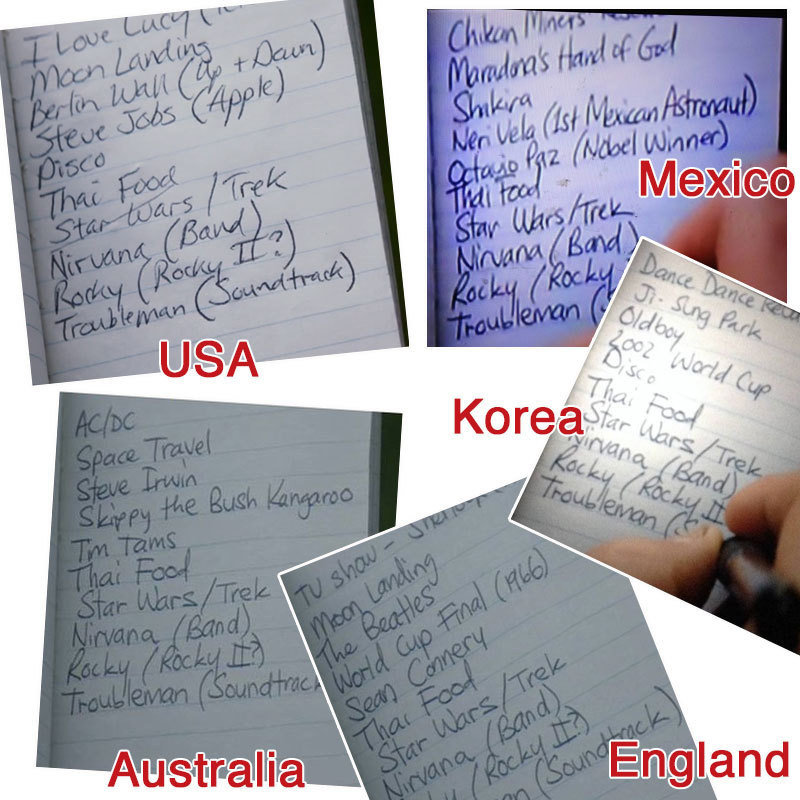 I Love Lucy
Moon Landing
Berlin Wall (Up + Down)
Steve Jobs (Apple)
Disco
Thai Food
Star Wars / Trek
Nirvana (Band)
Rocky (Rocky II?)
Troubleman (Soundtrack)
USA
Chilean Miners
Maradona's Hand of God
Shakira
Neri Vela (1st Mexican Astronaut)
Octavio Paz (Nobel Winner)
Thai Food
Star Wars/Trek
Nirvana (Band)
Rocky (Rocky
Troubleman (
Mexico
Dance Dance
Ji-Sung Park
Oldboy
2002 World Cup
Disco
Thai Food
Star Wars/Trek
Nirvana (Band)
Rocky (Rocky II
Troubleman (S
Korea
AC/DC
Space Travel
Steve Irwin
Skippy the Bush Kangaroo
Tim Tams
Thai Food
Star Wars/Trek
Nirvana (Band)
Rocky (Rocky II?)
Troubleman (Soundtrack
Australia
TV show -
Moon Landing
The Beatles
World Cup Final (1966)
Sean Connery
Thai Food
Star Wars/Trek
Nirvana (Band)
(Rocky II?)
(Soundtrack)
England